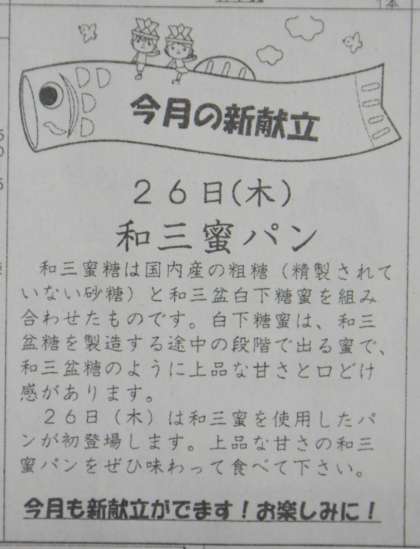 今月の新献立
２６日(木)
和三蜜パン
和三蜜糖は国内産の粗糖（精製されて
いない砂糖）と和三盆白下糖蜜を組み
合わせたものです。白下糖蜜は、和三
盆糖を製造する途中の段階で出る蜜で、
和三盆糖のように上品な甘さと口どけ
感があります。
２６日（木）は和三蜜を使用したパ
ンが初登場します。上品な甘さの和三
蜜パンをぜひ味わって食べて下さい。
今月も新献立がでます！お楽しみに！